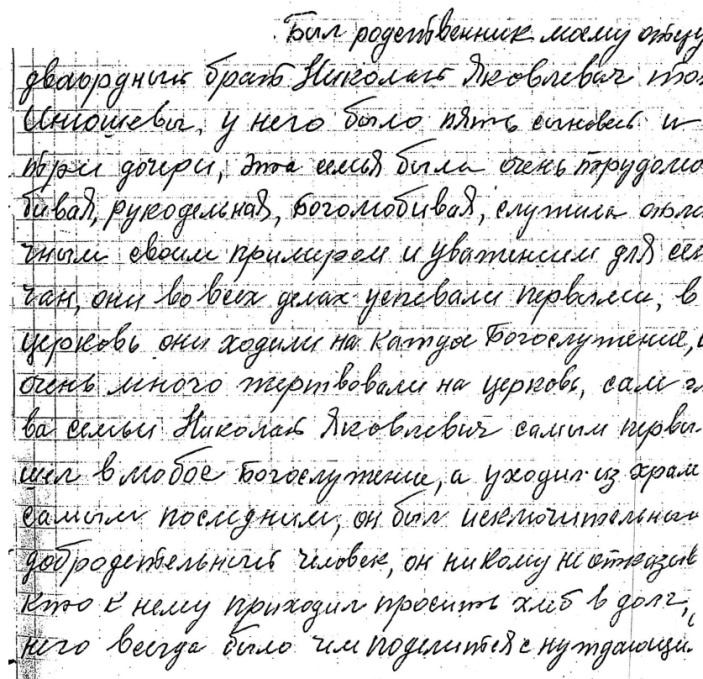 Был родственник моему отцу
двоюрдный брат Николай Яковлевич то
Инюшевы, у него было пять сыновей и
три дочери, эта семья была очень трудолю
бивая, рукодельная, боголюбивая, служила отли
чным своим примером и уважением для сел
чан, они во всех делах успевали первыми, в
церковь они ходили на каждое Богослужение,
очень много жертвовали на церковь, сам гл
ва семьи Николай Яковлевич самым первы
шел в любое Богослужение, а уходил из храм
самым последним, он был исключительный
добродетельный человек, он никому не отказыв
кто к нему приходил просить хлеб в долг,
него всегда было чем поделится с нуждающи